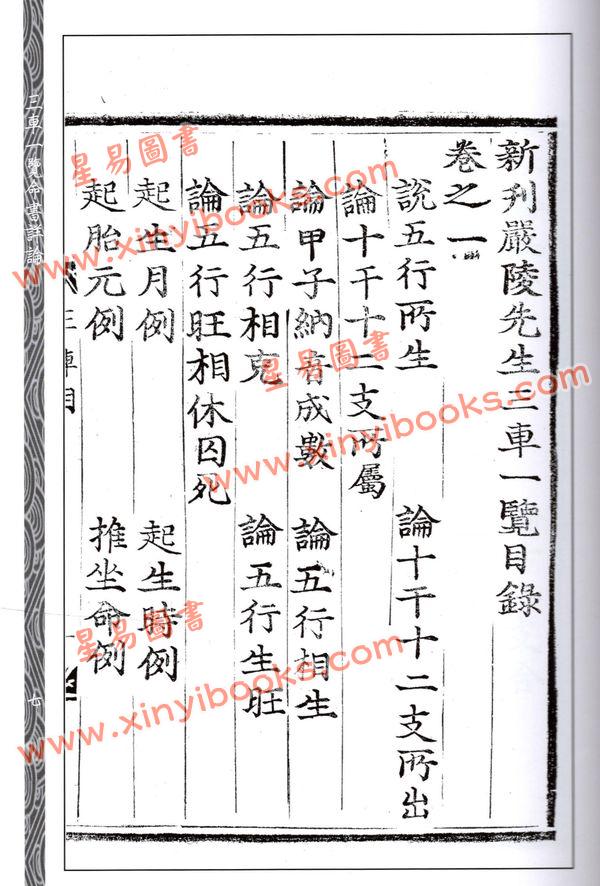 新刊嚴陵先生三車一覽目錄
卷之一
說五行所生 論十干十二支所出
論十干十二支所屬
論甲子納音成數 論五行相生
論五行相克 論五行生旺
論五行旺相休囚死
起生月例 起生時例
起胎元例 推坐命例
三車目
三車一覽命書詳論
七
星易圖書
www.xinyibooks.com
星易圖書
www.xinyibooks.com
星易圖書
www.xinyibooks.com